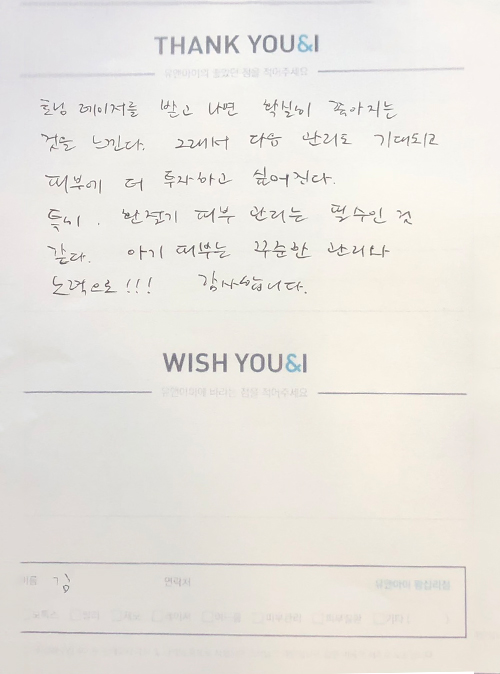 THANK YOU&I
유앤아이의 좋았던 점을 적어주세요
토닝 레이저를 받고 나면 확실히 쫀아지는
것을 느낀다. 그래서 다음 관리도 기대되고
피부에 더 투자하고 싶어진다.
특히, 환절기 피부 관리는 필수인 것
같다. 아기 피부는 꾸준한 관리와
노력으로!!! 감사합니다.
WISH YOU&I
유앤아이에 바라는 점을 적어주세요
이름 김 연락처 유앤아이
기타 ( )